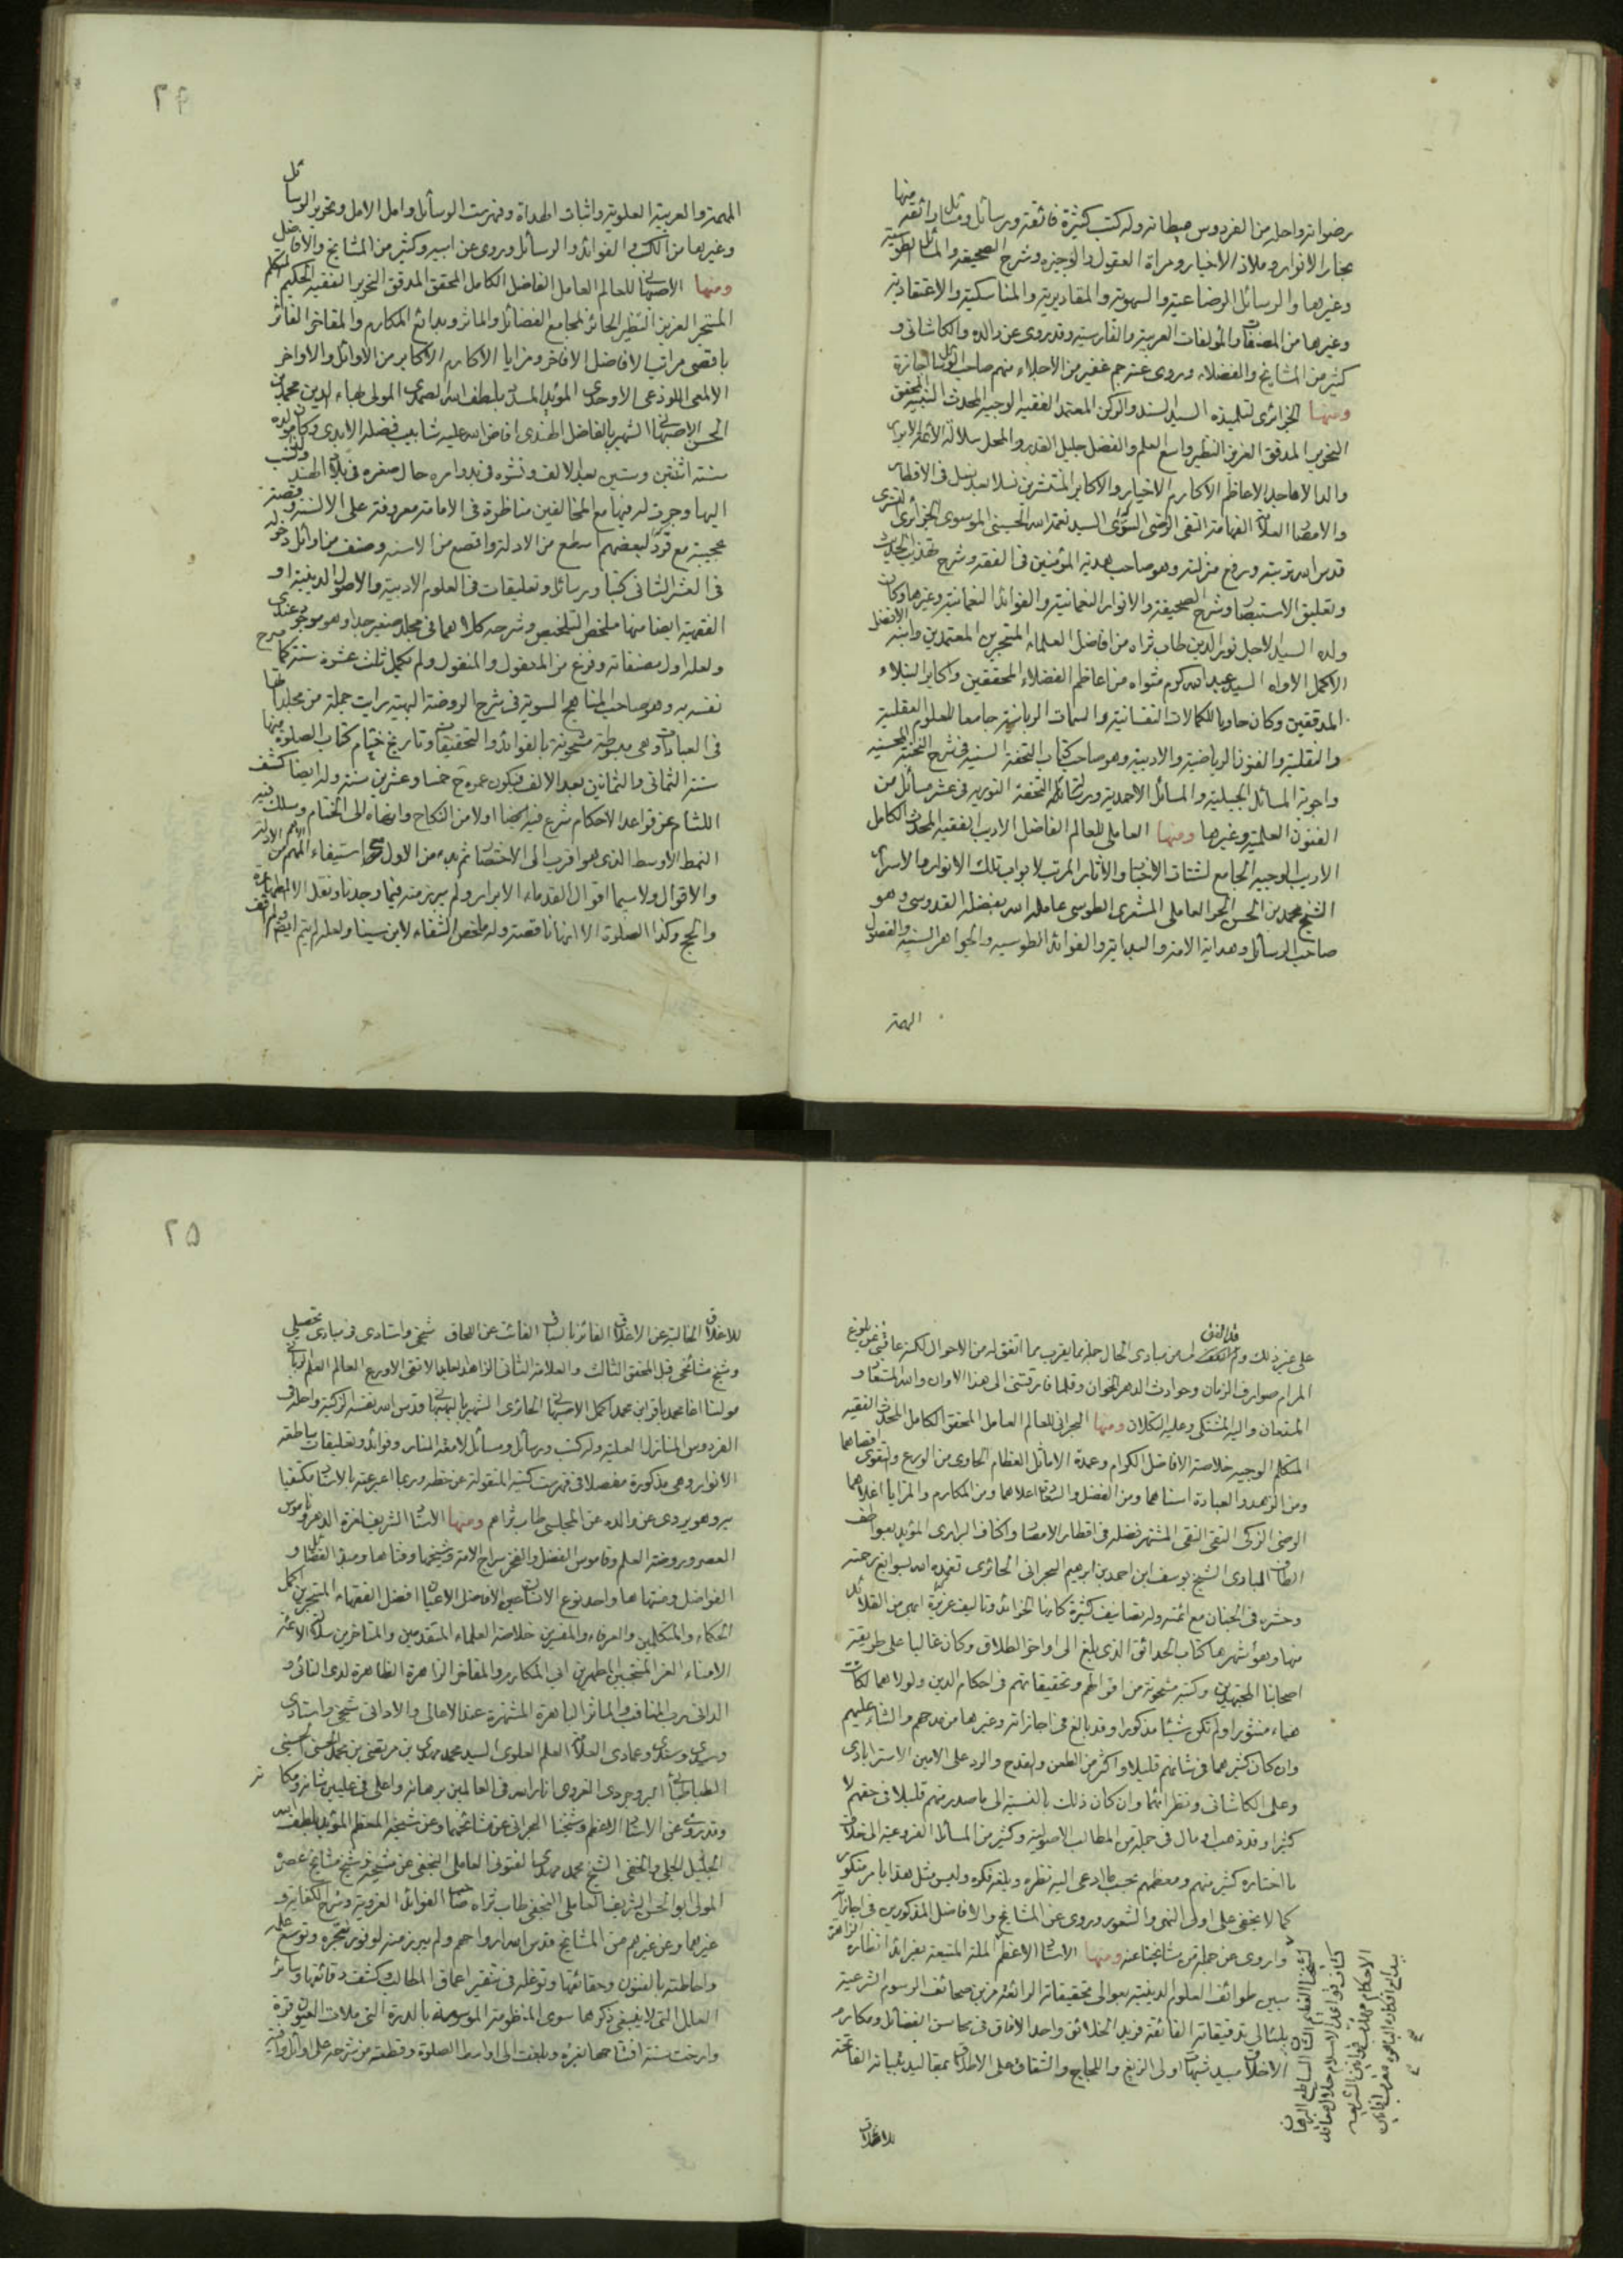 رضوانه واحله من الفردوس حيطانه وله كتب كثيرة فائقة ورسائل ومسائل رائقة منها
بحار الانوار وملاذ الاخيار ومراة العقول والوجيزه وشرح الصحيفة والمسائل الطوسية
وغيرها والرسائل الرضاعية والسهوية والمقاديرية والمناسكية والاعتقادية
وغيرها من المصنفات والمؤلفات العربية والفارسية وقد روى عن والده والكاشاني و
كثير من المشايخ والفضلاء وروى عنه جم غفير من الاجلاء منهم صاحب الوسائل اجازة
ومنها الجزائرى لتلميذه السيد السند والركن المعتمد الفقيه الوجيه المحدث النبيه المحقق
النحرير المدقق العزيز النظير واسع العلم والفضل جليل القدر والمحل سلالة الائمة الابرار
والد الاماجد الاعاظم الاكارم الاخيار والاكابر المنتشرين نسلا بعد نسل في الاقطار
والامصار العلامة الفهامة التقى الرضى السرى السيد نعمة الله الحسينى الموسوى الجزائرى التسترى
قدس الله تربته ورفع منزلته وهو صاحب هدية المؤمنين في الفقه وشرح تهذيب الحديث
وتعليق الاستبصار وشرح الصحيفة والانوار النعمانية والفوائد النعمانية وغيرها وكان
ولده السيد الاجل نور الدين طاب ثراه من افاضل العلماء المتبحرين المعتمدين وابنه الافضل
الاكمل الاواه السيد عبد الله كرم مثواه من اعاظم الفضلاء المحققين واكابر النبلاء
المدققين وكان حاويا للكمالات النفسانية والسمات الربانية جامعا للعلوم العقلية
والنقلية والفنون الرياضية والادبية وهو صاحب كتاب التحفة السنية في شرح النخبة المحسنية
واجوبة المسائل الجبلية والمسائل الاحمدية ورسالة التحفة النورية في عشر مسائل من
الفنون العلمية وغيرها ومنها العاملى للعالم الفاضل الاديب الفقيه المحدث الكامل
الاريب الوجيه الجامع لشتات الاخبار والآثار المرتب لابواب تلك الانوار والاسرار
الشيخ محمد بن الحسن الحر العاملى المشغرى الطوسى عامله الله بفضله القدوسى وهو
صاحب الوسائل وهداية الامة والبداية والفوائد الطوسيه والجواهر السنية والفصول
المهمة
٢٤
المهمة والعربية العلوية واثبات الهداة وفهرست الوسائل وامل الامل وتحرير الوسائل
وغيرها من الكتب والفوائد والرسائل وروى عن اسيه وكثير من المشايخ والافاضل
ومنها الاصبهانى للعالم العامل الفاضل الكامل المحقق المدقق النحرير الفقيه الحكيم المتكلم
المتبحر العزيز النظير الحائز لمجامع الفضائل والماثر وبدائع المكارم والمفاخر الفائز
باقصى مراتب الافاضل الافاخر ومزايا الاكارم الاكابر من الاوائل والاواخر
الالمعى اللوذعى الاوحدى المؤيد المسدد بلطف الله الصمدى المولى بهاء الدين محمد بن
الحسن الاصبهانى الشهير بالفاضل الهندى افاض الله عليه شابيب فضله الابدى وكان مولده
سنة اثنتين وستين بعد الالف ونشؤه في بدو امره حال صغره في بلاد الهند ولذا نسب
اليها وجرت له فيها مع المخالفين مناظرة في الامامة معروفة على الالسنة وقصته
عجيبة مع قرد لبعضهم اسطع من الادلة واقصع من الاسنه وصنف من اوائل دخوله
في العشر الثانى كتبا ورسائل وتعليقات في العلوم الادبية والاصول الدينية او
الفقهية ايضا منها ملخص التلخيص وشرحه كلاهما في مجلد صغير جدا وهو موجود عندى
ولعله اول مصنفاته وفرغ من المعقول والمنقول ولم يكمل ثلث عشرة سنة كما صرح
نفسه به وهو صاحب المناهج السوية في شرح الروضة البهية رايت جملة من مجلداتها
في العبادات وهى مبسوطة مشحونة بالفوائد والتحقيقات وتاريخ ختام كتاب الصلوة منها
سنة الثمانى والثمانين بعد الالف فيكون عمره ح خمسا وعشرين سنة وله ايضا كشف
اللثام عن قواعد الاحكام شرع فيه ايضا اولا من النكاح وانهاه الى الختام وسلك فيه
النمط الاوسط الذى هو اقرب الى الاختصار ثم بدء من الاول استيفاء المهم من الادلة
والاقوال ولاسيما اقوال القدماء الابرار ولم يبرز منه فيما وجدنا ونقل الا الطهارة
والحج وكذا الصلوة الا انها ناقصة وله ملخص الشفاء لابن سينا ولعله لم يتم ايضا ولم اقف
على غير ذلك من مبادى الحال جملة مما يقرب مما اتفق له من الاحوال لكنه عاقنى عن بلوغ
المرام صوارف الزمان وحوادث الدهر الخوان وقلما فارقتنى الى هذا الاوان والله المستعان و
المستعان واليه المشتكى وعليه التكلان ومنها البحرانى للعالم العامل المحقق الكامل المحدث الفقيه
المتكلم الوجيه خلاصة الافاضل الكرام وعمدة الاماثل العظام الحاوى من الورع والتقوى اقصاهما
ومن الزهد والعبادة اسناهما ومن الفضل والسعادة اعلاهما ومن المكارم والمزايا اغلاهما
الرضى الزكى التقى النقى المشتهر فضله في اقطار الامصار واكناف البرارى المؤيد بعواطف
الطاف البارى الشيخ يوسف ابن احمد بن ابرهيم البحرانى الحائرى تغمده الله بسوابغ رحمته
وحشره في الجنان مع ائمته وله تصانيف كثيرة كانها الخرائد وتاليف عزيزة ابهى من القلائد
منها وهو اشهرها كتاب الحدائق الذى بلغ الى اواخر الطلاق وكان غالبا على طريقة
اصحابنا المجتهدين وكتبه مشحونة من اقوالهم وتحقيقاتهم في احكام الدين ولولاهما لكانت
هباء منثورا ولم تكن شيئا مذكورا وقد بالغ في اجازاته وغيرها من مدحهم والثناء عليهم
وان كان كثيرهما في شانهم قليلا واكثر من الطعن والقدح والرد على الامين الاسترابادى
وعلى الكاشانى ونظرائهما وان كان ذلك بالنسبة الى ما صدر منهم قليلا في حقهم لا
كثيرا وقد ذهب او مال في جملة من المطالب الاصولية وكثير من المسائل الفروعية الى خلاف
ما اختاره كثير منهم ومعظمهم بحسب ما ادعى اليه نظره وبلغه فكره وليس مثل هذا بامر منكور
كما لا يخفى على اولى النهى والشعور وروى عن المشايخ والافاضل المذكورين في اجازاته
واروى عن جملة من مشايخنا عنه ومنها الاستاد الاعظم الملة المتيعة بفرائد انظاره الزاهرة
مبين طوائف العلوم الدينية بعوالى تحقيقاته الرائقة مزين صحائف الرسوم الشرعية
بلئالى تدقيقاته الفائقة فريد الخلائق واحد الافاق في محاسن الفضائل ومكارم
الاخلاق مبيد شبهات اولى الزيغ واللجاج والشقاق على الاطلاق بمقاليد تبيانه الفاتحة
للاغلاق
٢٥
للاغلاق الخالية عن الاغلاق الفائز بالسباق الفائت عن اللحاق شيخى واستادى في مبادى تحصيلى
وشيخ مشائخى قبل المحقق الثالث والعلامة الثانى الزاهد العابد الاتقى الاورع العالم العلم الربانى
مولنا اغا محمد باقر ابن محمد اكمل الاصبهانى الحائرى الشهير بالبهبهانى قدس الله نفسه الزكية واحله في
الفردوس المنازل العلية وله كتب ورسائل ومسائل لامعة المنار وفوائد وتعليقات ساطعة
الانوار وهى مذكورة مفصلا في فهرست كتبه المنقولة عن خطه وربما اعبر عنه بالاستاد مكتفيا
به وهو يروى عن والده عن المجلسى طاب ثراهم ومنها الاستاد الشريف لغرة الدهر وناموس
العصر وروضة العلم وقاموس الفضل والفخر سراج الامة وشيخها وفتاها ومبدء الفضائل و
الفواضل ومنتهاها واحد نوع الانسان عين الافاضل الاعيان افضل الفقهاء المتبحرين اكمل
الحكماء والمتكلمين والعرفاء والمفسرين خلاصة العلماء المتقدمين والمتاخرين سلالة الائمة
الامناء الغر المنتجبين المطهرين ابى المكارم والمفاخر الزاهرة الظاهرة لدى النائى و
الدانى رب المناقب والماثر الباهرة المشتهرة عند الاعالى والادانى شيخى واستادى
وسيدى وسندى وعمادى العلامة العلم العلوى السيد محمد مهدى بن مرتضى بن محمد الحسنى الحسينى
الطباطبائى البروجردى الغروى انار الله في العالمين برهانه واعلى في عليين شانه ومكانه
وقد روى عن الاستاد الاعظم وشيخنا البحرانى عن مشائخهما وعن شيخه المعظم المؤيد بلطف الله
الجليل الجلى والخفى الشيخ محمد مهدى الفتونى العاملى النجفى عن شيخه وشيخ مشايخ عصره
المولى ابو الحسن الشريف العاملى النجفى طاب ثراه صاحب الفوائد الغروية وشرح الكفاية و
غيرهما وعن غيرهم من المشايخ قدس الله ارواحهم ولم يبرز منه لوفور تبحره وتوسع علمه
واحاطته بالفنون وحقائقها وتوغله في تنقير اعماق المطالب وكشف دقائقها وسائر
العلل التى لا ينبغى ذكرها سوى المنظومة الموسومة بالدرة التى ملات العيون قرة
وارخت سنة افتتاحها بغرة وبلغت الى اواسط الصلوة وقطعة من شرحه على اوائل